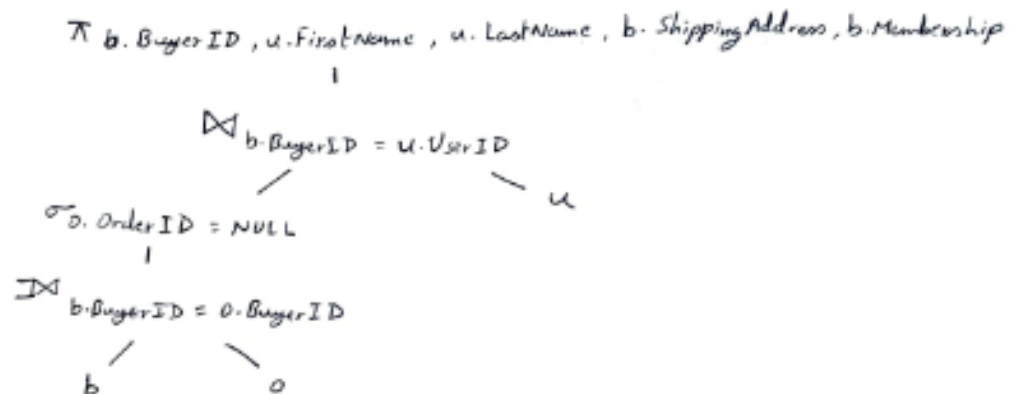 π b.BuyerID, u.FirstName, u.LastName, b.ShippingAddress, b.Membership
⋈ b.BuyerID = u.UserID
σ o.OrderID = NULL
u
⟕ b.BuyerID = o.BuyerID
b o